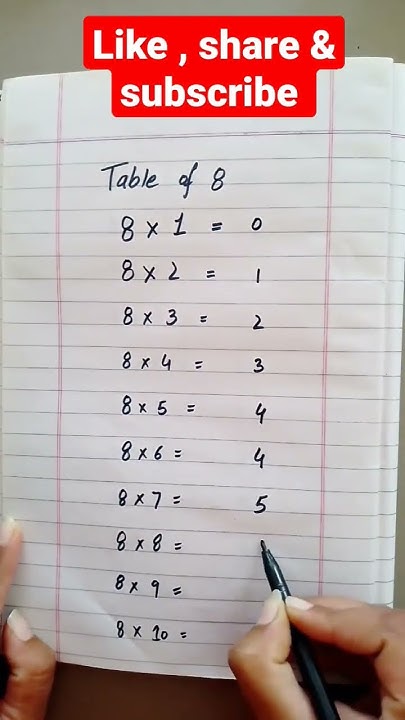 Like , share &
subscribe
Table of 8
8 × 1 = 0
8 × 2 = 1
8 × 3 = 2
8 × 4 = 3
8 × 5 = 4
8 × 6 = 4
8 × 7 = 5
8 × 8 =
8 × 9 =
8 × 10 =